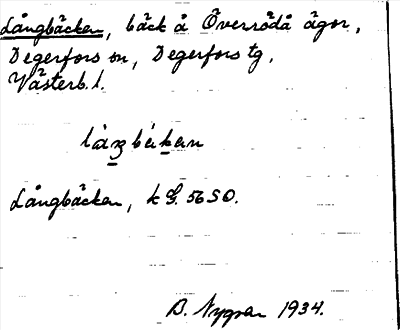 Långbäcken, bäck å Överrödå ägor,
Degerfors sn, Degerfors tg,
Västerb. l.
Långbäcken, k G. 56 SO.
B. Nygren 1934.